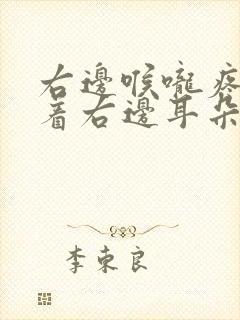 右邊喉嚨疼
着右邊耳朵
李東良